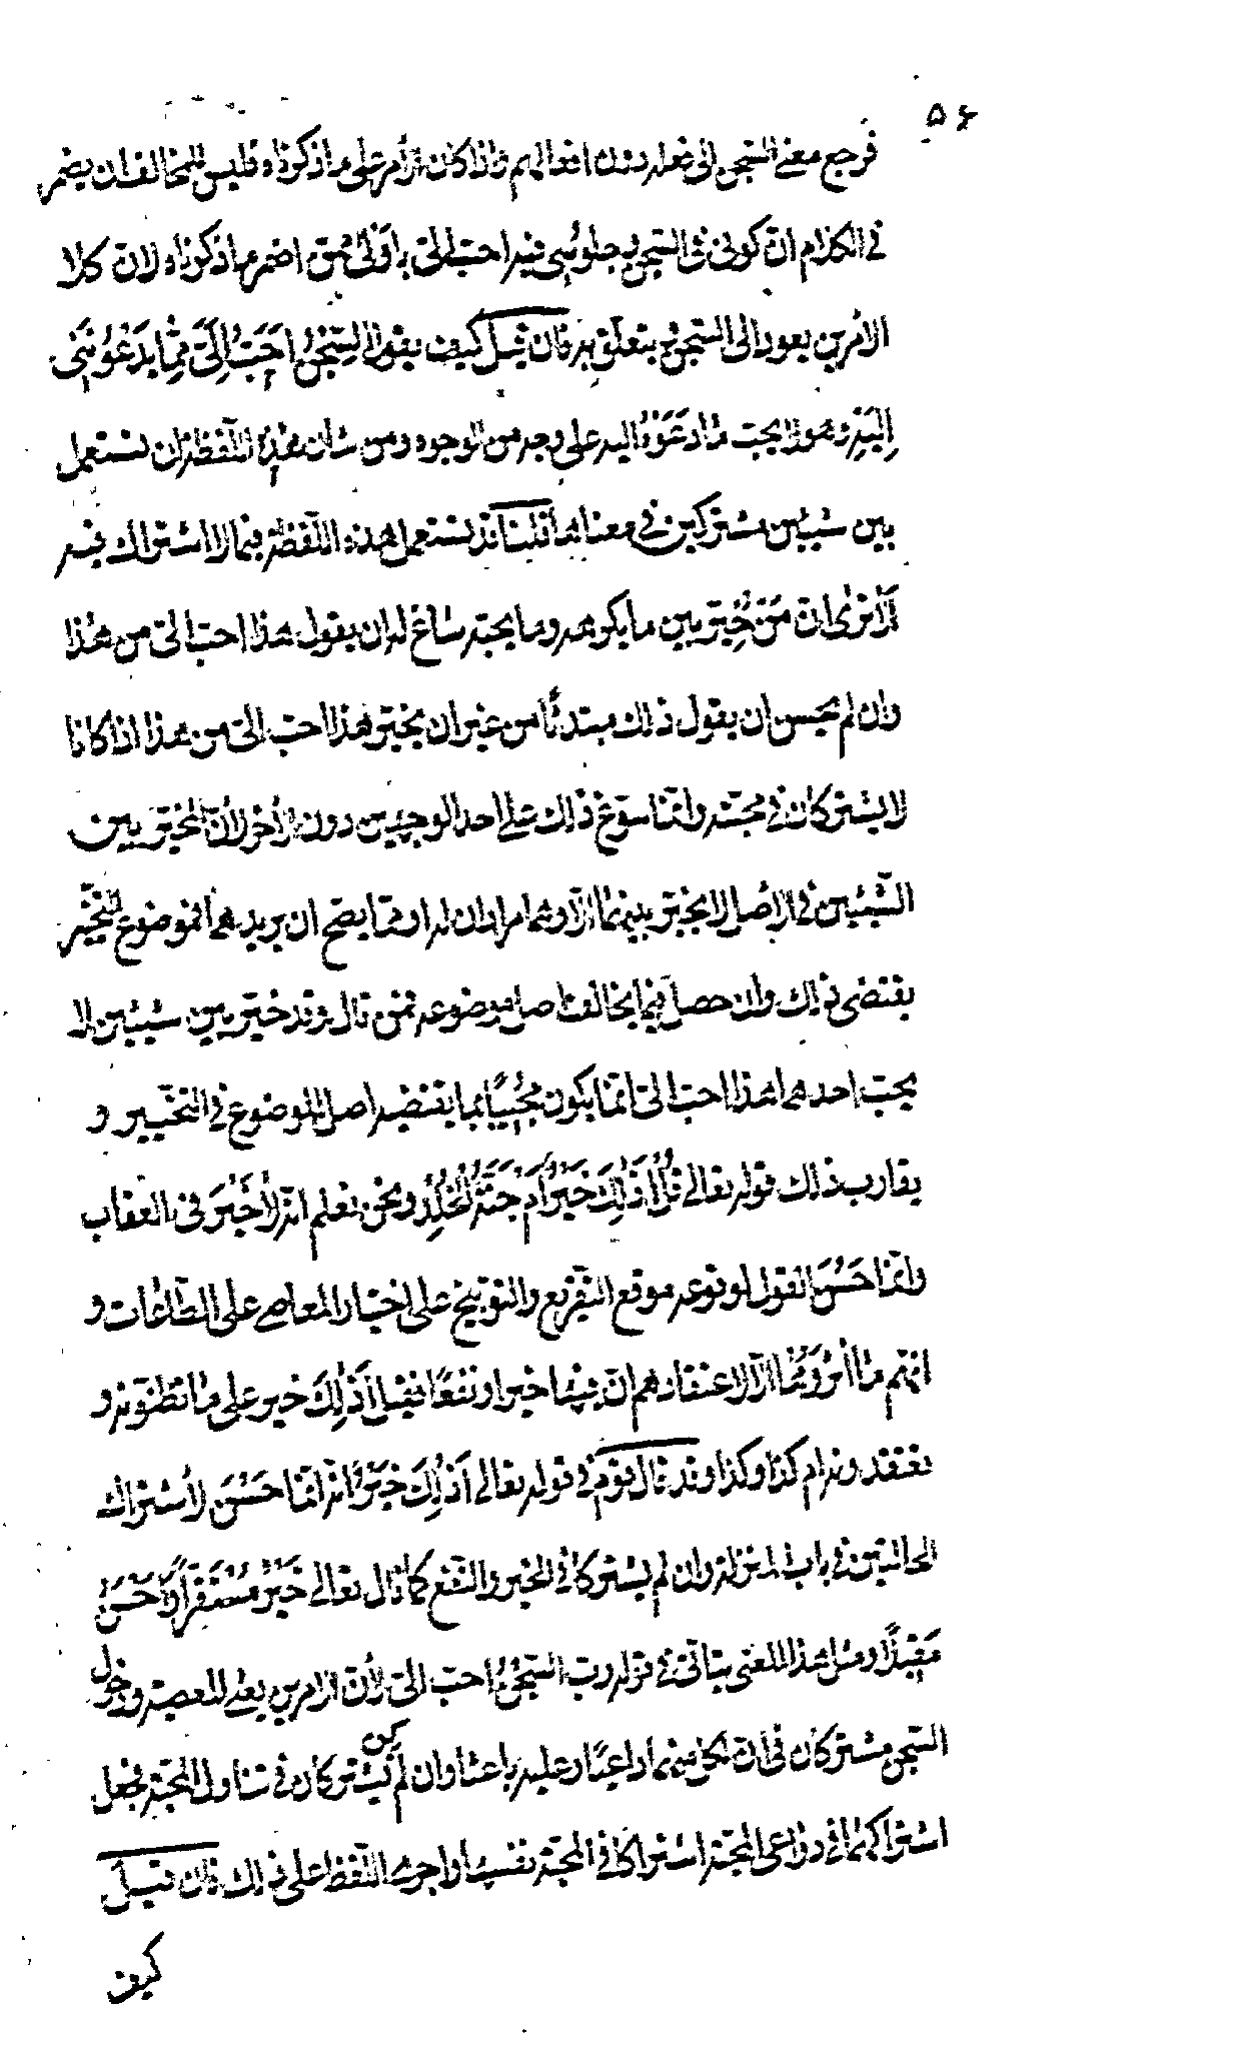 ۵۶
فرجع معنى السجن الى فعله دون افعالهم فاذا كان الأمر على ما ذكرناه فليس للمخالف ان يضمر
في الكلام ان كوني في السجن وجلوسي فيه احب الىّ باولى ممن اضمر ما ذكرناه لان كلا
الأمرين يعود الى السجن ويتعلق به فان قيل كيف يقول السِّجْنُ اَحَبُّ اِلَيَّ مِمَّا يَدْعُونَنِي
اِلَيْهِ وهو لا يحب ما دعوه اليه على وجه من الوجوه ومن شأن هذه اللفظة ان تستعمل
بين شيئين مشتركين في معناها قلنا قد تستعمل هذه اللفظة فيما لا اشتراك فيه
ألا ترى ان مَن خُيِّر بين ما يكرهه وما يحبه ساغ له ان يقول هذا احب الىّ من هذا
وان لم يحسن ان يقول ذلك مبتدئًا من غير ان يخير هذا احب الىّ من هذا اذا كانا
لا يشتركان في محبته وانما سوغ ذلك على احد الوجهين دون الأخر لأن المخير بين
الشيئين في الأصل لا يخير بينهما الا وهما مرادان له او مما يصح ان يريدهما فموضوع التخيير
يقتضى ذلك وان حصل فيما يخالف اصل موضوعه فمن قال وقد خير بين شيئين لا
يحب احدهما هذا احب الىّ انما يكون مجيبًا بما يقتضيه اصل الموضوع في التخيير و
يقارب ذلك قوله تعالى قُلْ أَذٰلِكَ خَيْرٌ أَمْ جَنَّةُ الْخُلْدِ ونحن نعلم انه لا خَيْرَ في العقاب
وانما حَسُنَ القول لوقوعه موقع التقريع والتوبيخ على اختيار المعاصي على الطاعات و
انهم ما أثروها الا لاعتقادهم ان فيها خيرا ونفعًا فقيل أَذٰلِكَ خير على ما تظنونه و
تعتقدونه ام كذا وكذا وقد قال قوم في قوله تعالى أَذٰلِكَ خَيْرٌ انه انما حَسُنَ لاشتراك
الحالتين في باب المنزلة وان لم يشتركا في الخير والنفع كما قال تعالى خَيْرٌ مُسْتَقَرًّا وَأَحْسَنُ
مَقِيلًا ومثل هذا المعنى يتأتى في قوله رب السجن احب الىّ لأن الامرين يعني المعصية ودخول
السجن مشتركان في ان لكل منهما داعيًا وعليه باعثا وان لم يكن يشتركان في تناول المحبة فجعل
اشتراكهما في دواعي المحبة اشتراكا في المحبة نفسها واجرى اللفظ على ذلك فان قيل
كيف